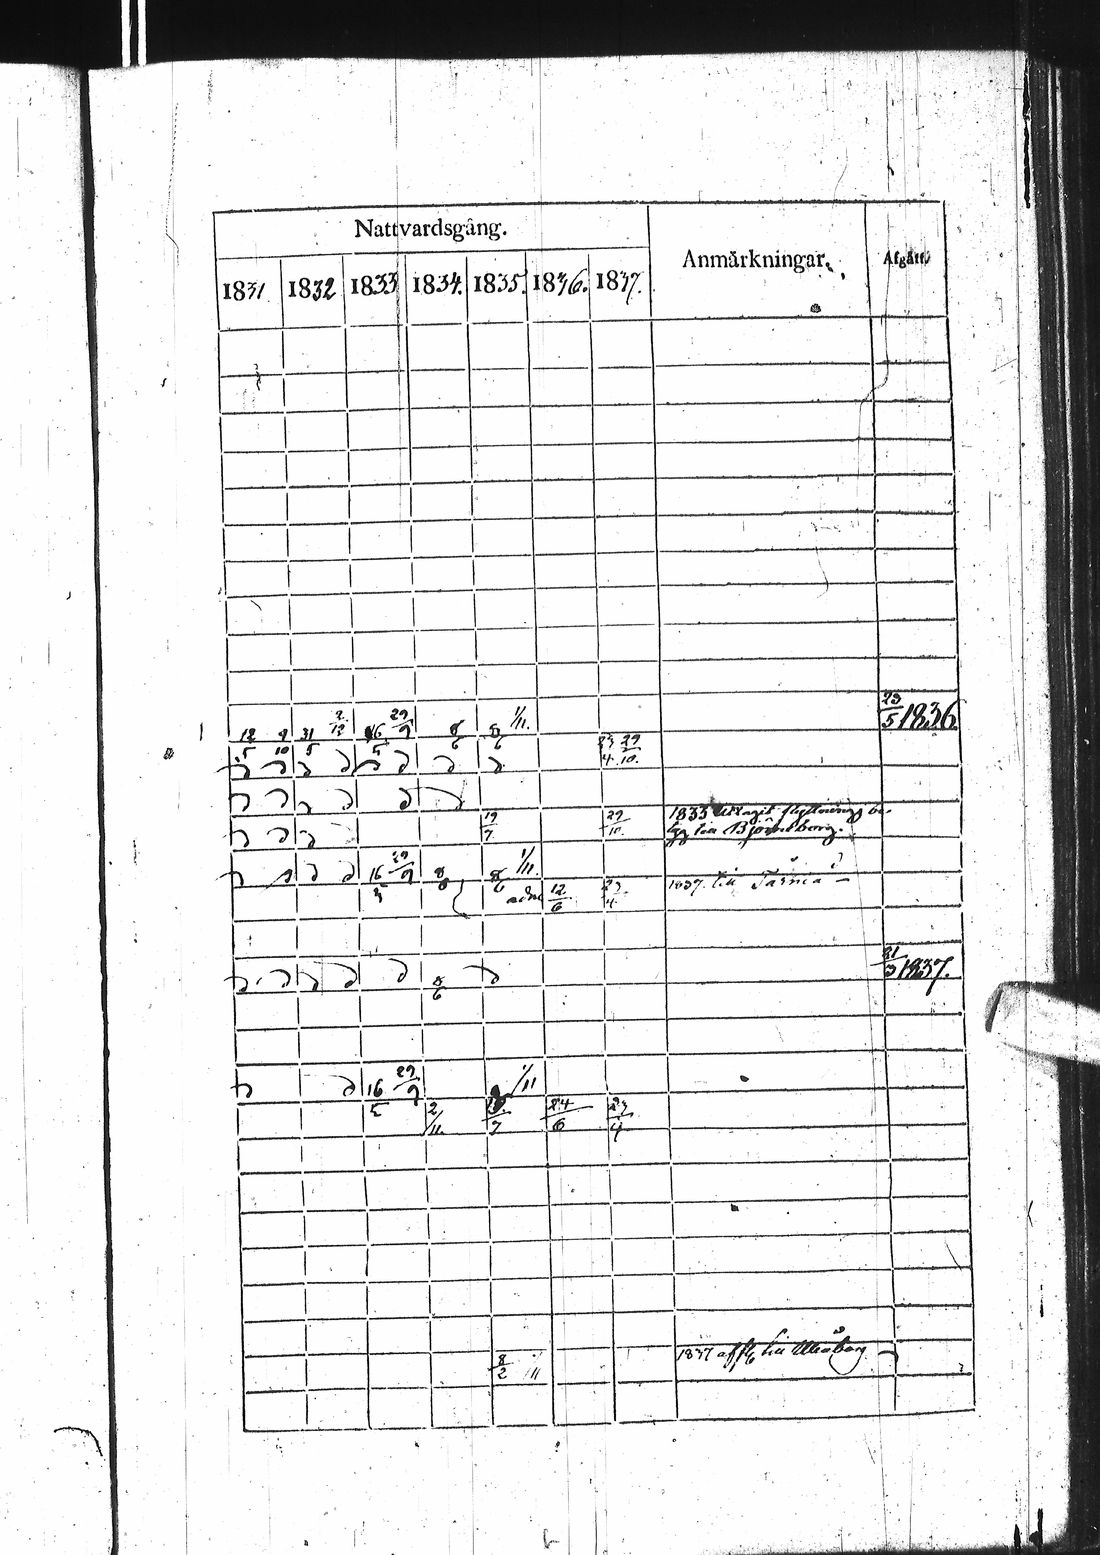 Nattvardsgång.
Anmärkningar.
Afgått.
1831 1832 1833 1834. 1835. 1836. 1837.
23/5 1836
12/5 9/10 31/5 2/12 16/5 29/9 8/6 8/6 1/11.
23/4. 29/10.
19/7. 29/10 1833 uttagit flyttnings be-
tyg till Björneborg.
16/5 29/9 8/6 8/6 1/11.
12/6 23/4. 1837. till
21/3 1837.
8/6
16/5 29/9 1/11
2/11. 19/7 24/6 23/4
8/2 1/11 1837 till Uleåborg